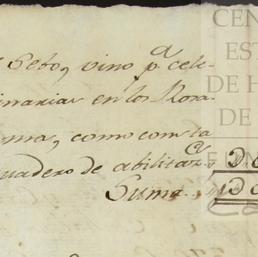 Sebo, vino pa. cele-
inarias en los Rosa-
ma, como con ta
uadero de abilitaz.
Suma
CEN
EST
DE H
DE